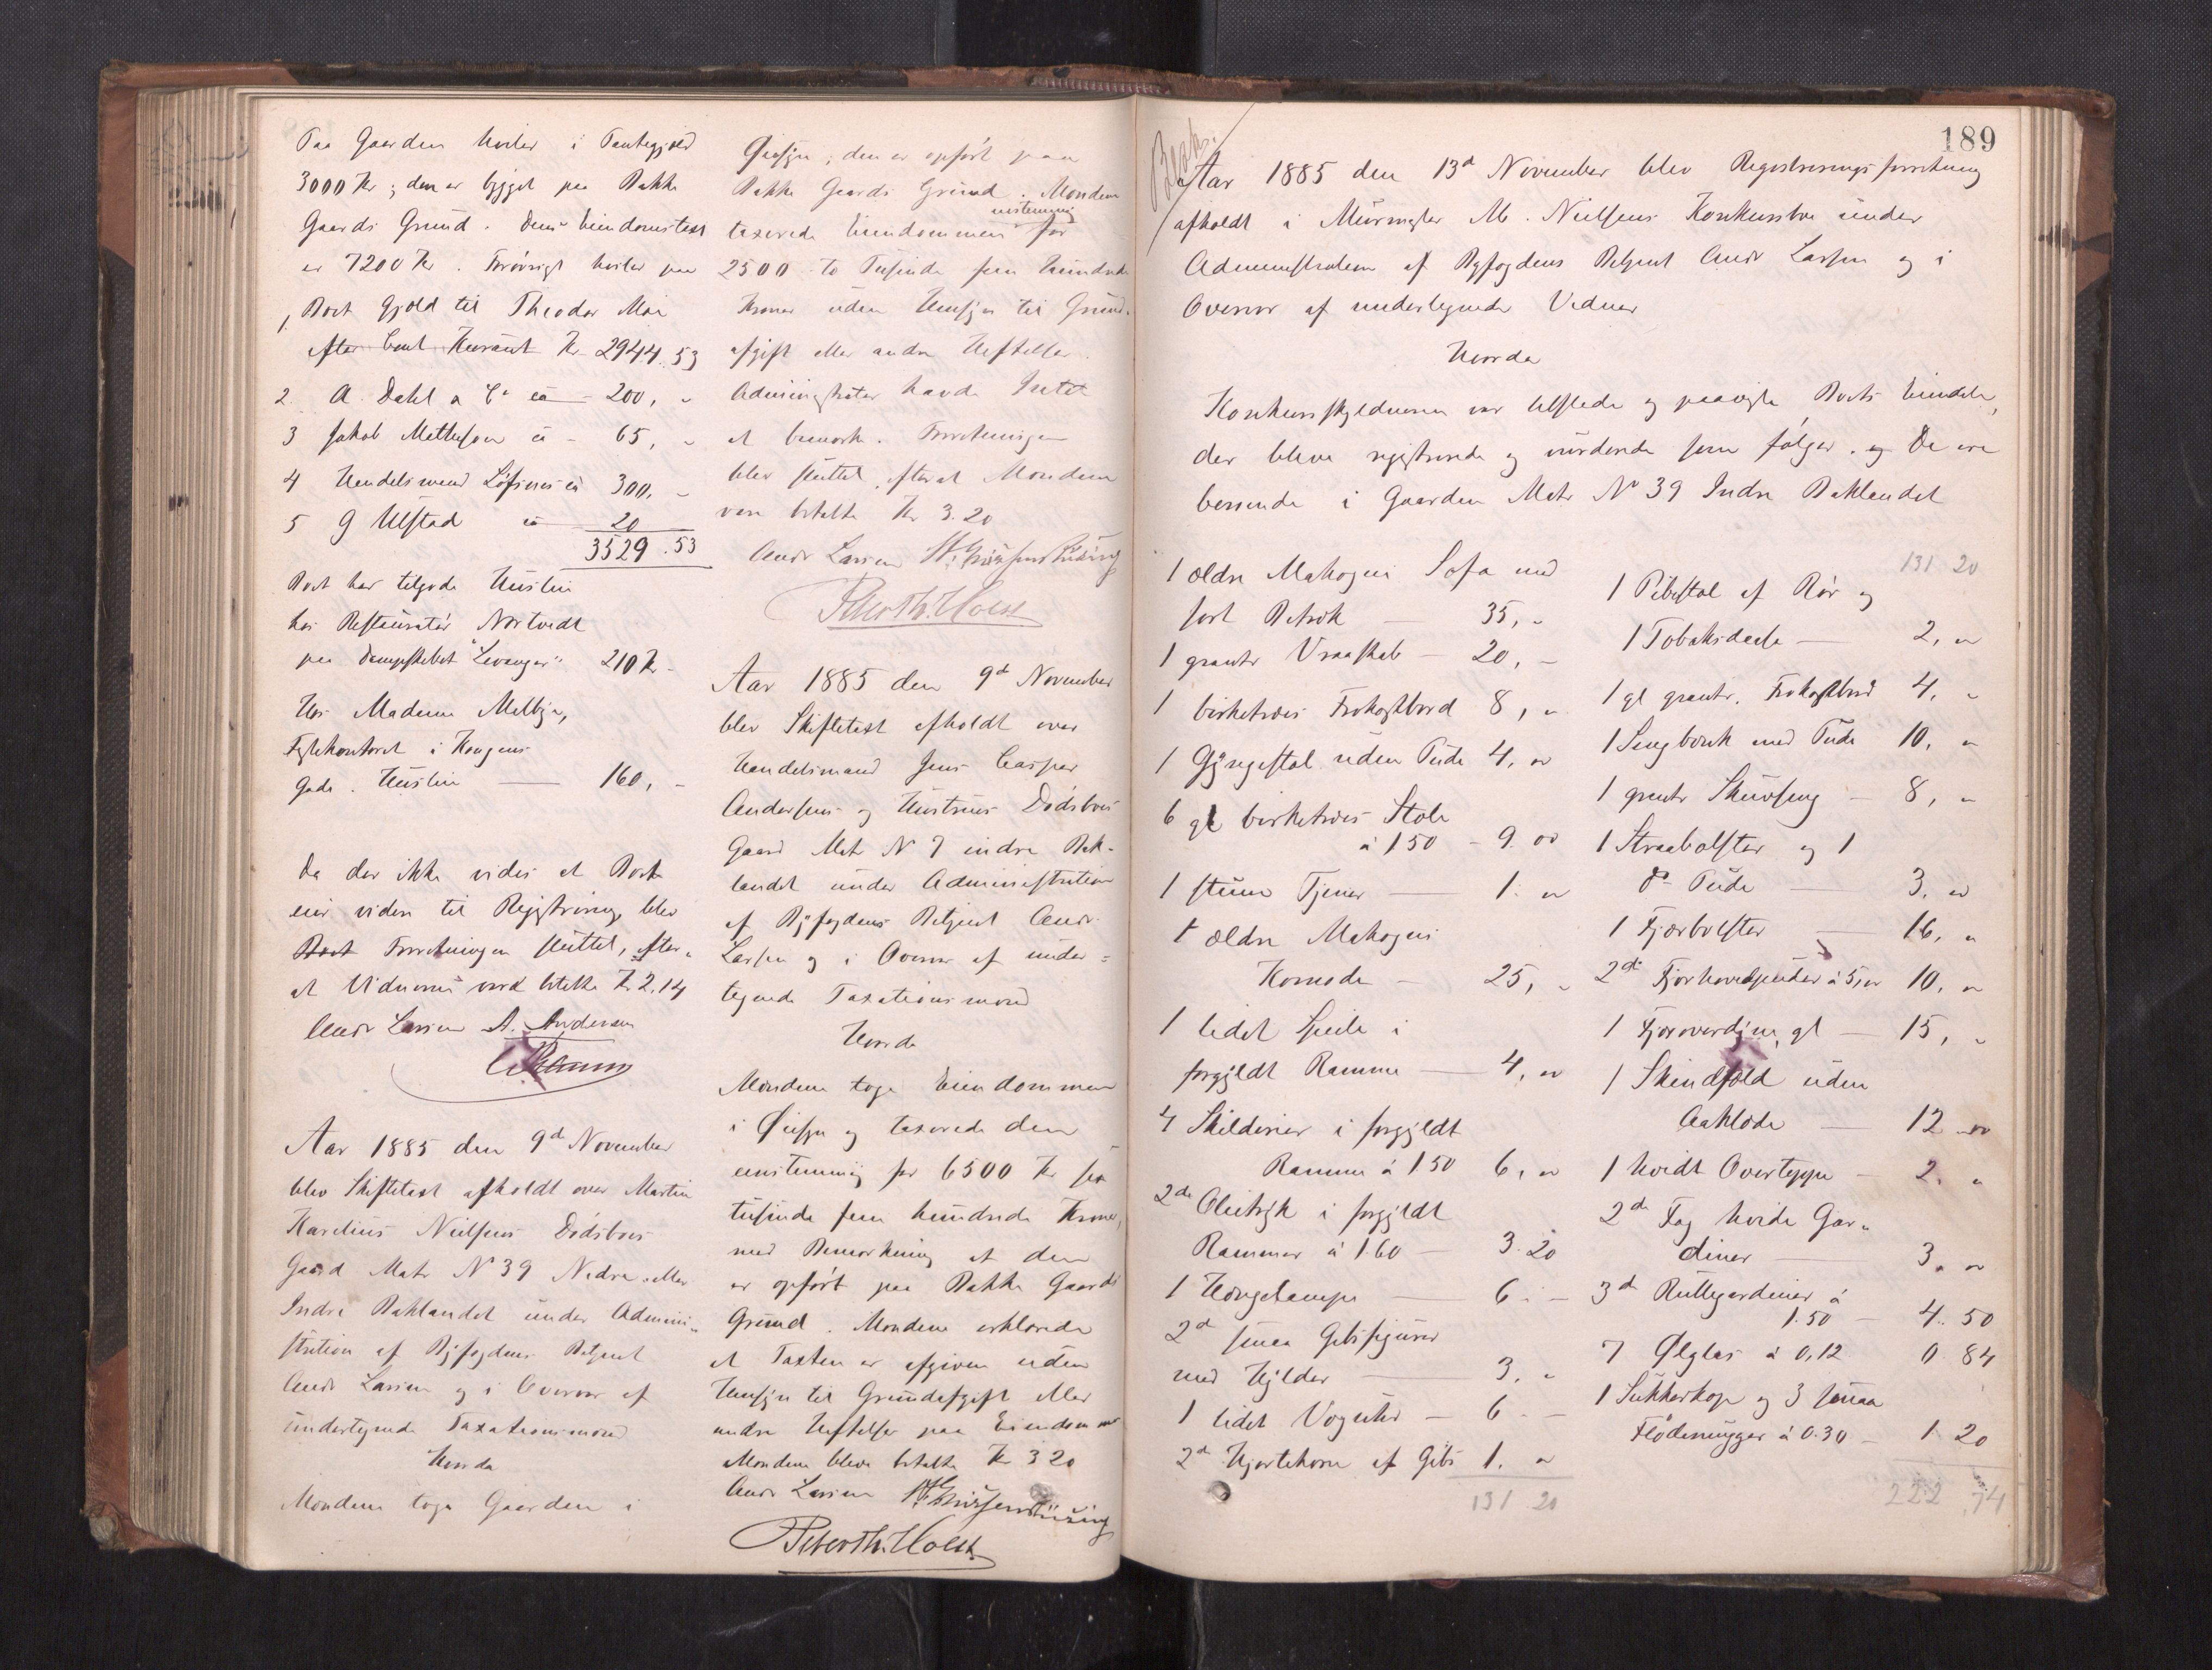 Paa Gaarden hviler i Pantegjæld
3000 Kr; den er bygget paa Bakke
Gaards Grund. Dens Eiendomstaxt
er 7200 Kr. Forøvrigt hviler paa
Boet Gjæld til Theodor Moe
1, efter Conto Kurant Kr. 2944.53
2. A. Dahl & Co ca - 200, "
3 Jakob Mathisen ca - 65, "
4 Handelsmand ca 300, "
5 G Ulstad ca 20
3529.53
Boet har tilgode Husleie
hos Restauratør Nortvedt
paa Dampskibet "Levanger" 210 Kr -
Hos Madam Melbye,
i Kongens
Gade. Husleie 160, -
Da der ikke vides at Boet
eier videre til Registrering, blev
Boet Forretningen sluttet, efter-
at Vidnerne vare betalte Kr 2.14
Andr Larsen A. Andersen
Aar 1885 den 9d November
blev Skiftetaxt afholdt over Martin
Karelius Nielsens Dødsboes
Gaard Matr No 39 Nedre eller
Indre Baklandet under Admini-
stration af Byfogdens Betjent
Andr Larsen og i Overvær af
undertegnede Taxationsmænd
Hvorda
Mændene toge Gaarden i
Øiesyn; den er opført paa
Bakke Gaards Grund. Mændene
enstemmig
taxerede Eiendommen for
2500 to Tusinde fem Hundrede
Kroner uden Hensyn til Grund-
afgift eller andre Heftelser.
Administrator havde Intet
at bemærke. Forretningen
blev sluttet, efterat Mændene
vare betalte Kr 3.20
Andr Larsen
Peter Th. Holst
Aar 1885 den 9d November
blev Skiftetaxt afholdt over
Handelsmand Jens Casper
Andersens og Hustrues Dødsboes
Gaard Matr No 7 indre Bak-
landet under Administration
af Byfogdens Betjent Andr.
Larsen og i Overvær af under=
tegnede Taxationsmænd
Hvorda
Mændene toge Eiendommen
i Øiesyn og taxerede den
enstemmig for 6500 Kr sex
tusinde fem hundrede Kroner,
med Bemærkning at den
er opført paa Bakke Gaards
Grund. Mændene erklærede
at Taxten er afgiven uden
Hensyn til Grundafgift eller
andre Heftelser paa Eiendommen
Mændene bleve betalte Kr 3 20
Andr Larsen
Peter Th. Holst
189
Aar 1885 den 13d November blev Registreringsforretning
afholdt i Murmester M. Nielsens Konkursbo under
Administration af Byfogdens Betjent Andr Larsen og i
Overvær af undertegnede Vidner
Hvorda
Konkursskyldneren var tilstede og paaviste Boets Eiendele,
der bleve registrerede og vurderede som følger. og De ere
beroende i Gaarden Matr No 39 Indre Baklandet
1 ældre Mahogni Sofa med
sort Betræk - 35, "
1 grantr Vraaskab - 20, -
1 birketræes Frokostbord 8, "
1 Gyngestol uden Pude 4, "
6 gl birketræes Stole
á 150 - 9. 00
1 stum Tjener - 1. "
1 ældre Mahogni
Komode - 25, "
1 lidet Speile i
forgyldt Ramme - 4, "
4 Skilderier i forgyldt
Ramme á 150 6, "
2de Olietryk i forgyldt
Rammer á 1.60 - 3.20
1 Hængelampe - 6 . -
2d smaa Gibsfigurer
med Hylder - 3, "
1 lidet Væguhr - 6 . -
2d Hjortehorn af Gibs 1. "
131.20
131 20
1 Pibestol af Rør og
1 Tobaksdaase - 2, "
1 gl grantr. Frokostbord 4, "
1 Sengbænk med Pude 10, "
1 grantr Skuvseng - 8, "
1 Straabolster og 1
do Pude - 3. "
1 Fjærbolster - 16, "
2de Fjærhovedpuder á 5, " 10, "
1 Fjæroverdyne, gl - 15, "
1 Skindfæld uden
Aaklæde - 12 "
1 hvidt Overteppe - 2. "
2de Fag hvide Gar-
diner - 3, "
3de Rullegardiner á
1.50 - 4. 50
7 Ølglas á 0,12 0 84
1 Sukkerkop og 3 smaa
Flødemugger á 0.30 - 1. 20
222 74